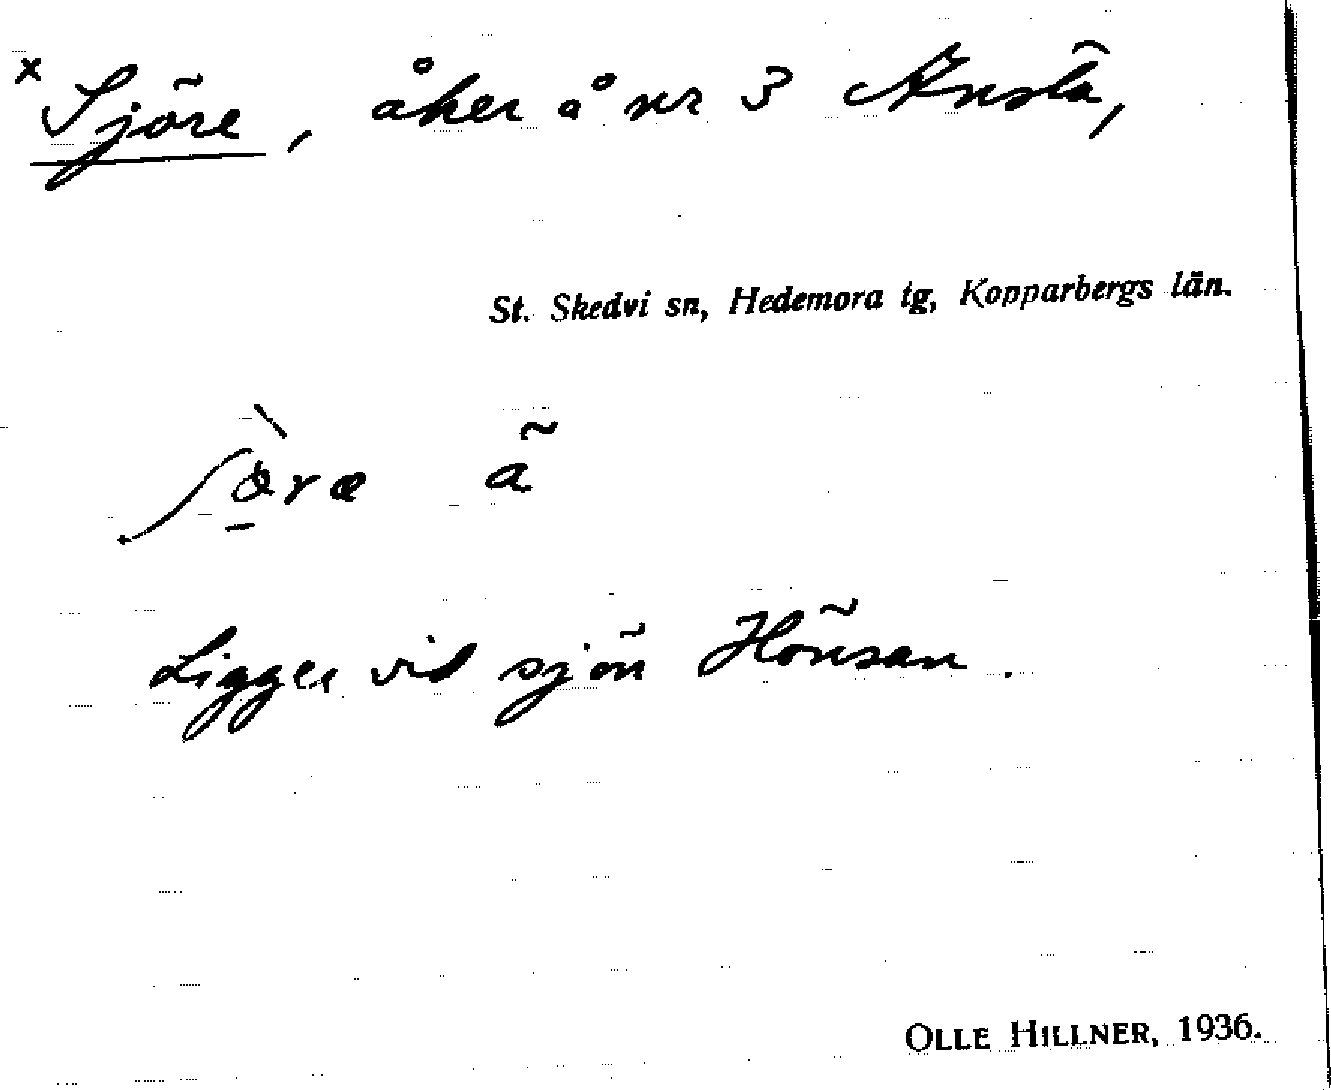 x Sjöre, åker å nr 3 Ansta,
St. Skedvi sn, Hedemora tg, Kopparbergs län.
a
Ligger vid sjön Hönsan.
OLLE HILLNER, 1936.